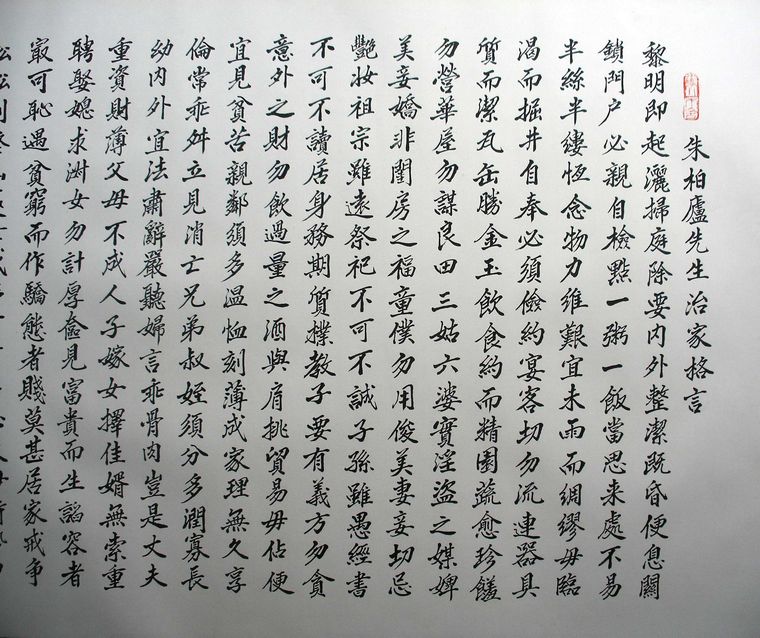 朱柏廬先生治家格言
黎明即起灑掃庭除要內外整潔既昏便息關
鎖門户必親自檢點一粥一飯當思来處不易
半絲半縷恆念物力維艱宜未雨而綢繆毋臨
渴而掘井自奉必須儉約宴客切勿流連器具
質而潔瓦缶勝金玉飲食約而精園蔬愈珍饈
勿營華屋勿謀良田三姑六婆實淫盜之媒婢
美妾嬌非閨房之福童僕勿用俊美妻妾切忌
艷妝祖宗雖遠祭祀不可不誠子孫雖愚經書
不可不讀居身務期質樸教子要有義方勿貪
意外之財勿飲過量之酒與肩挑貿易毋佔便
宜見貧苦親鄰須多温恤刻薄成家理無久享
倫常乖舛立見消亡兄弟叔姪須分多潤寡長
幼內外宜法肅辭嚴聽婦言乖骨肉豈是丈夫
重資財薄父母不成人子嫁女擇佳婿無索重
聘娶媳求淑女勿計厚奩見富貴而生諂容者
最可恥遇貧窮而作驕態者賤莫甚居家戒争